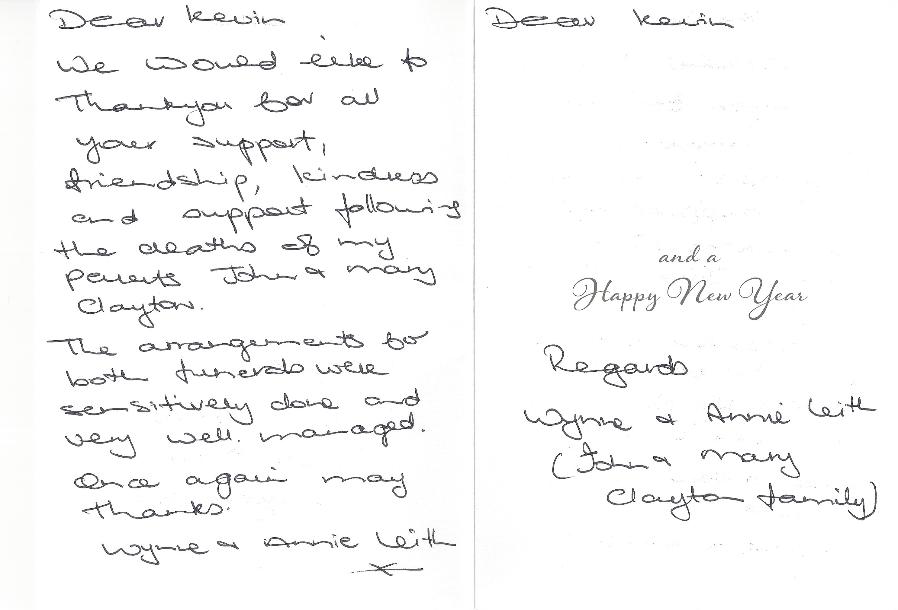 Dear Kevin
We would like to
Thankyou for all
your support,
friendship, kindness
and support following
the deaths of my
parents John & Mary
Clayton.
The arrangements for
both funerals were
sensitively done and
very well managed.
Once again many
thanks.
Wynne & Annie Leith
x
Dear Kevin
and a
Happy New Year
Regards
Wynne & Annie Leith
(John & Mary
Clayton family)